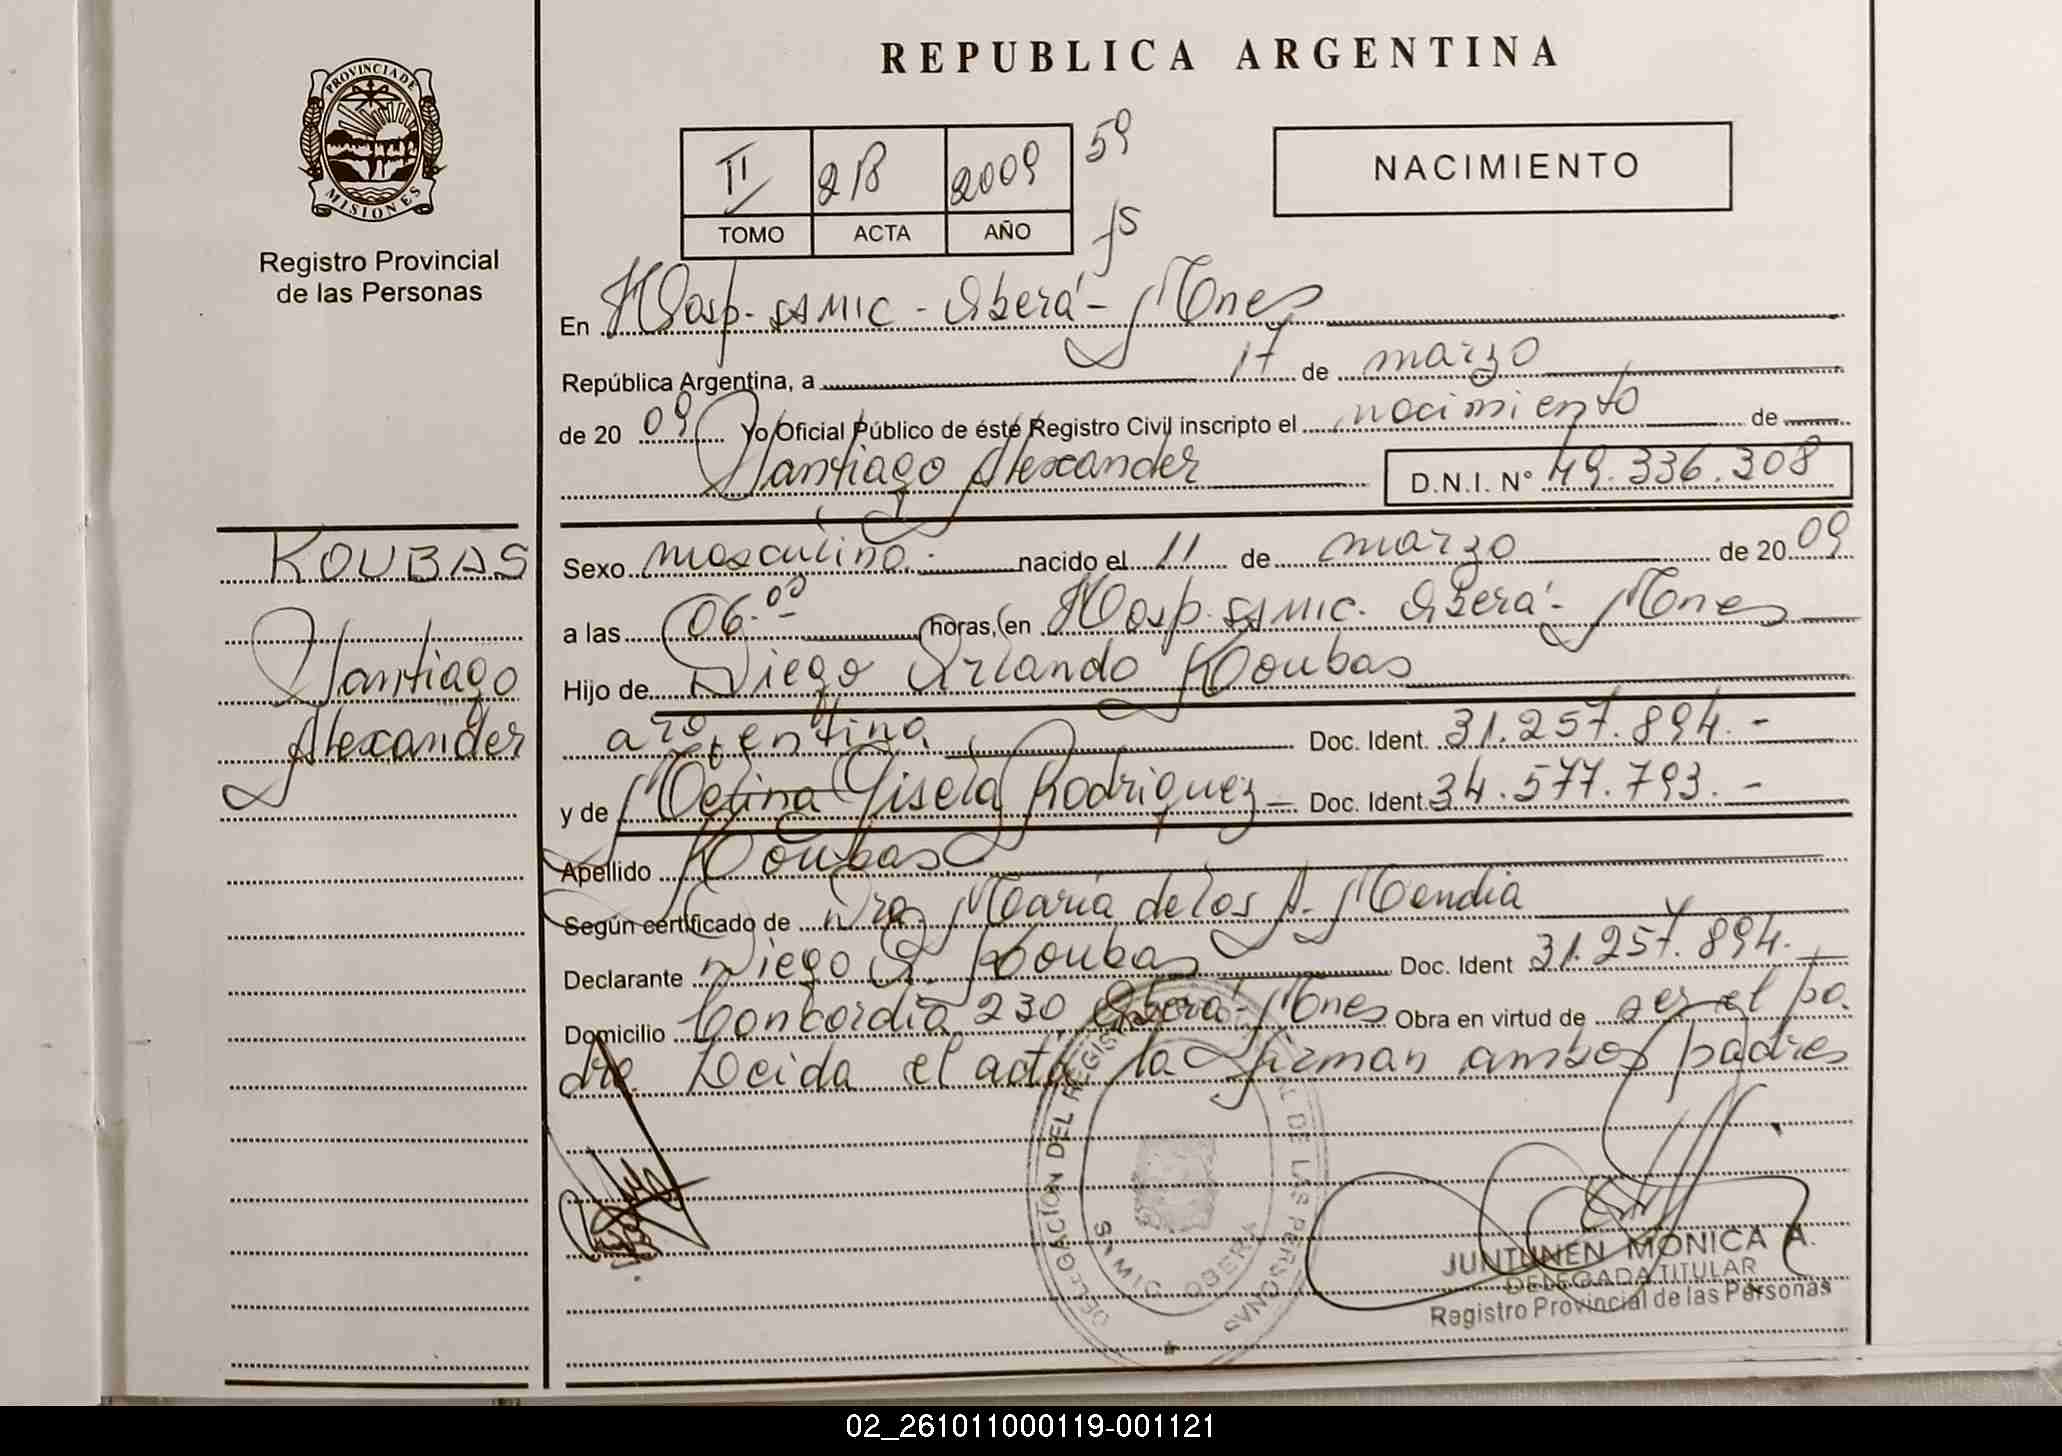 REPUBLICA ARGENTINA
PROVINCIA DE
MISIONES
Registro Provincial
de las Personas
II 218 2009 59
TOMO ACTA AÑO fs
NACIMIENTO
En Hosp. SAMIC - Oberá - Mnes
República Argentina, a 17 de marzo
de 20 09 Yo Oficial Público de éste Registro Civil inscripto el nacimiento de
Santiago Alexander D.N.I. N° 49.336.308
KOUBAS
Santiago
Alexander
Sexo masculino.- nacido el 11 de marzo de 20 09
a las 06.00 horas, en Hosp. SAMIC. Oberá - Mnes
Hijo de Diego Orlando Koubas
argentino Doc. Ident. 31.257.894.-
y de Melina Gisela Rodriguez - Doc. Ident. 34.577.793.-
Apellido Koubas
Según certificado de Dra. María de los A. Mendia
Declarante Diego O. Koubas Doc. Ident 31.257.894.
Domicilio Concordia 230 Oberá - Mnes Obra en virtud de ser el pa.
dre. Leida el acta la firman ambos padres
DELEGACION DEL REGISTRO DE LAS PERSONAS
SAMIC OBERA
JUNTUNEN MONICA A.
DELEGADA TITULAR
Registro Provincial de las Personas
02_261011000119-001121